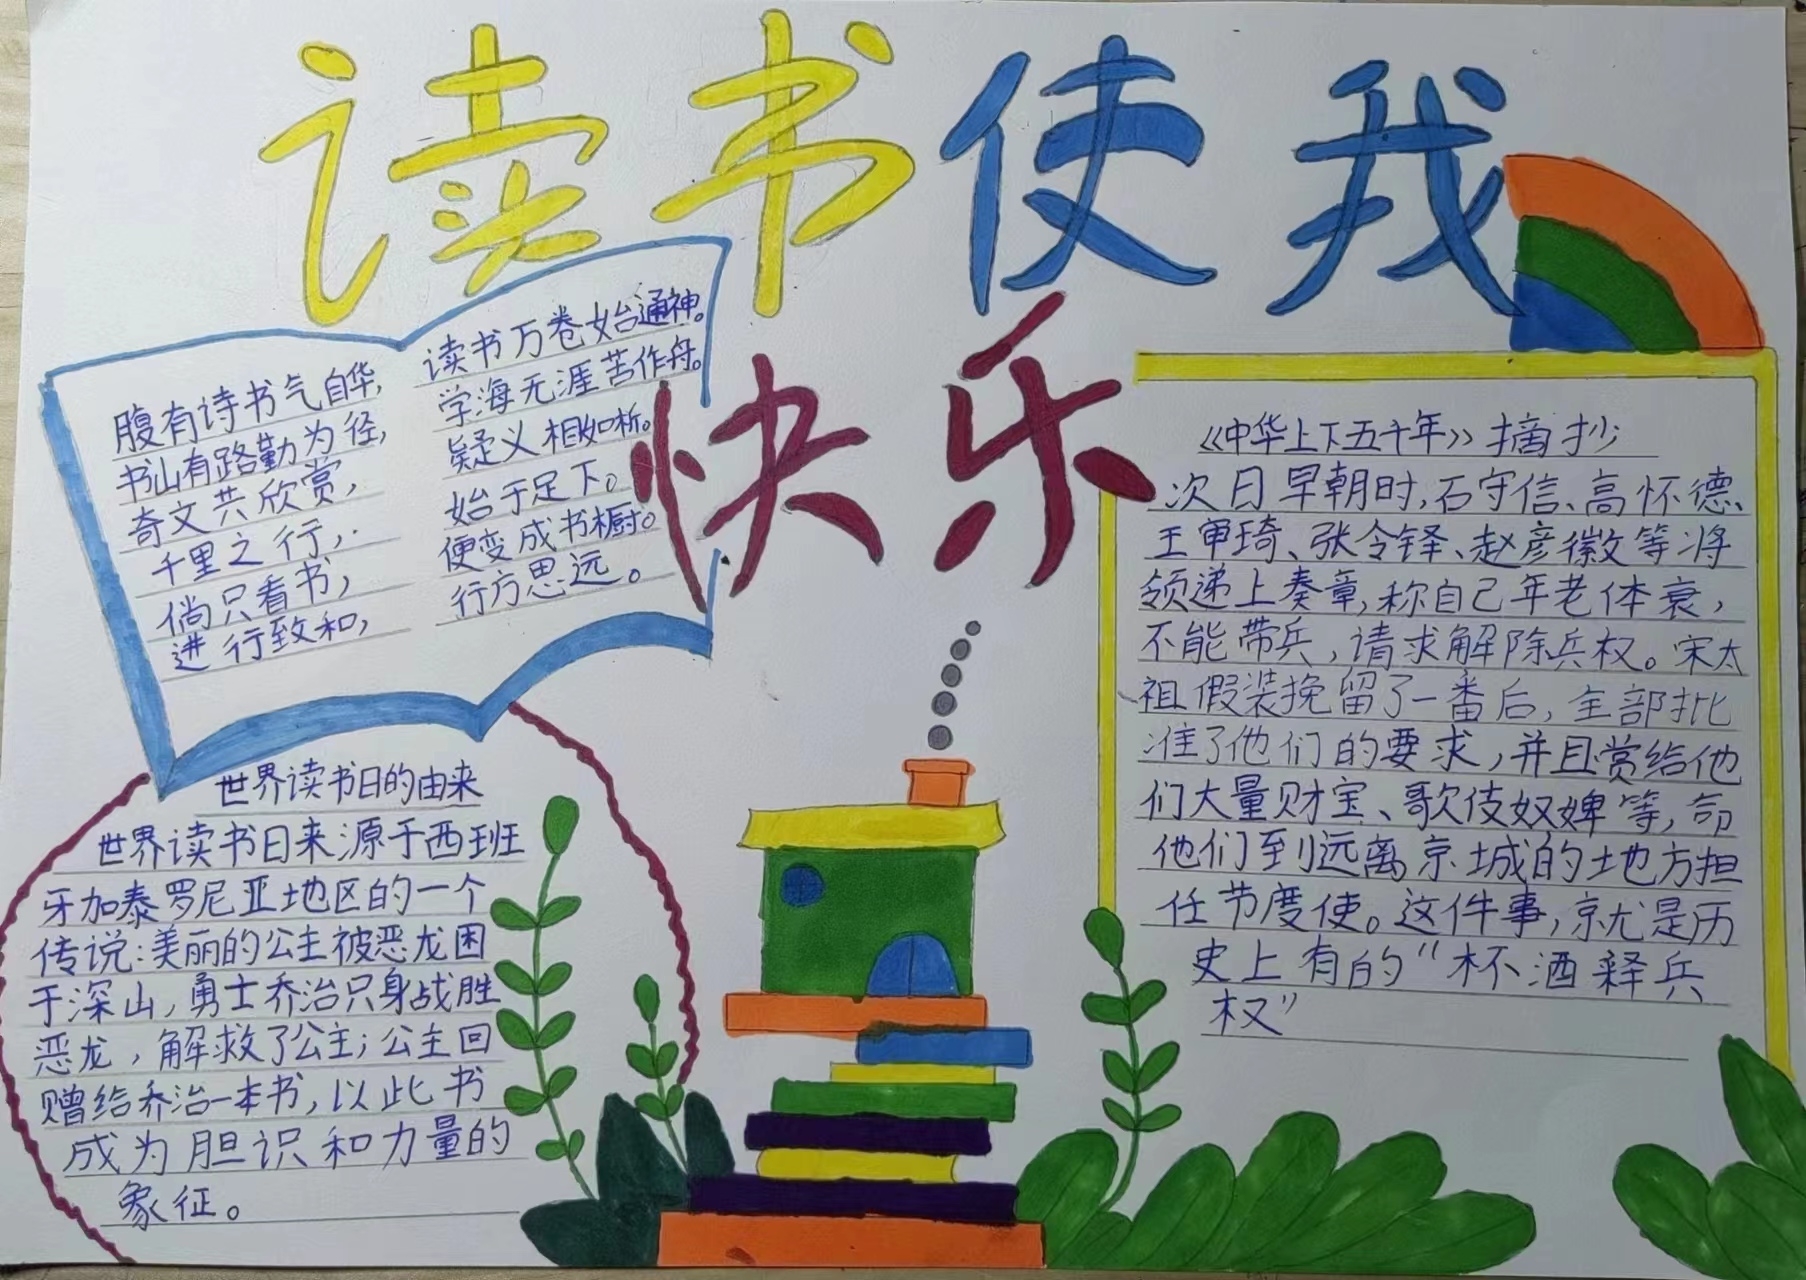 读书使我
快乐
腹有诗书气自华,
书山有路勤为径,
奇文共欣赏,
千里之行,
倘只看书,
进行致和,
读书万卷始通神。
学海无涯苦作舟。
疑义相如析。
始于足下。
便变成书橱。
行方思远。
世界读书日的由来
世界读书日来源于西班
牙加泰罗尼亚地区的一个
传说:美丽的公主被恶龙困
于深山,勇士乔治只身战胜
恶龙,解救了公主;公主回
赠给乔治一本书,以此书
成为胆识和力量的
象征。
《中华上下五千年》摘抄
次日早朝时,石守信、高怀德、
王审琦、张令铎、赵彦徽等将
领递上奏章,称自己年老体衰,
不能带兵,请求解除兵权。宋太
祖假装挽留了一番后,全部批
准了他们的要求,并且赏给他
们大量财宝、歌伎奴婢等,命
他们到远离京城的地方担
任节度使。这件事,就是历
史上有的“杯酒释兵
权”